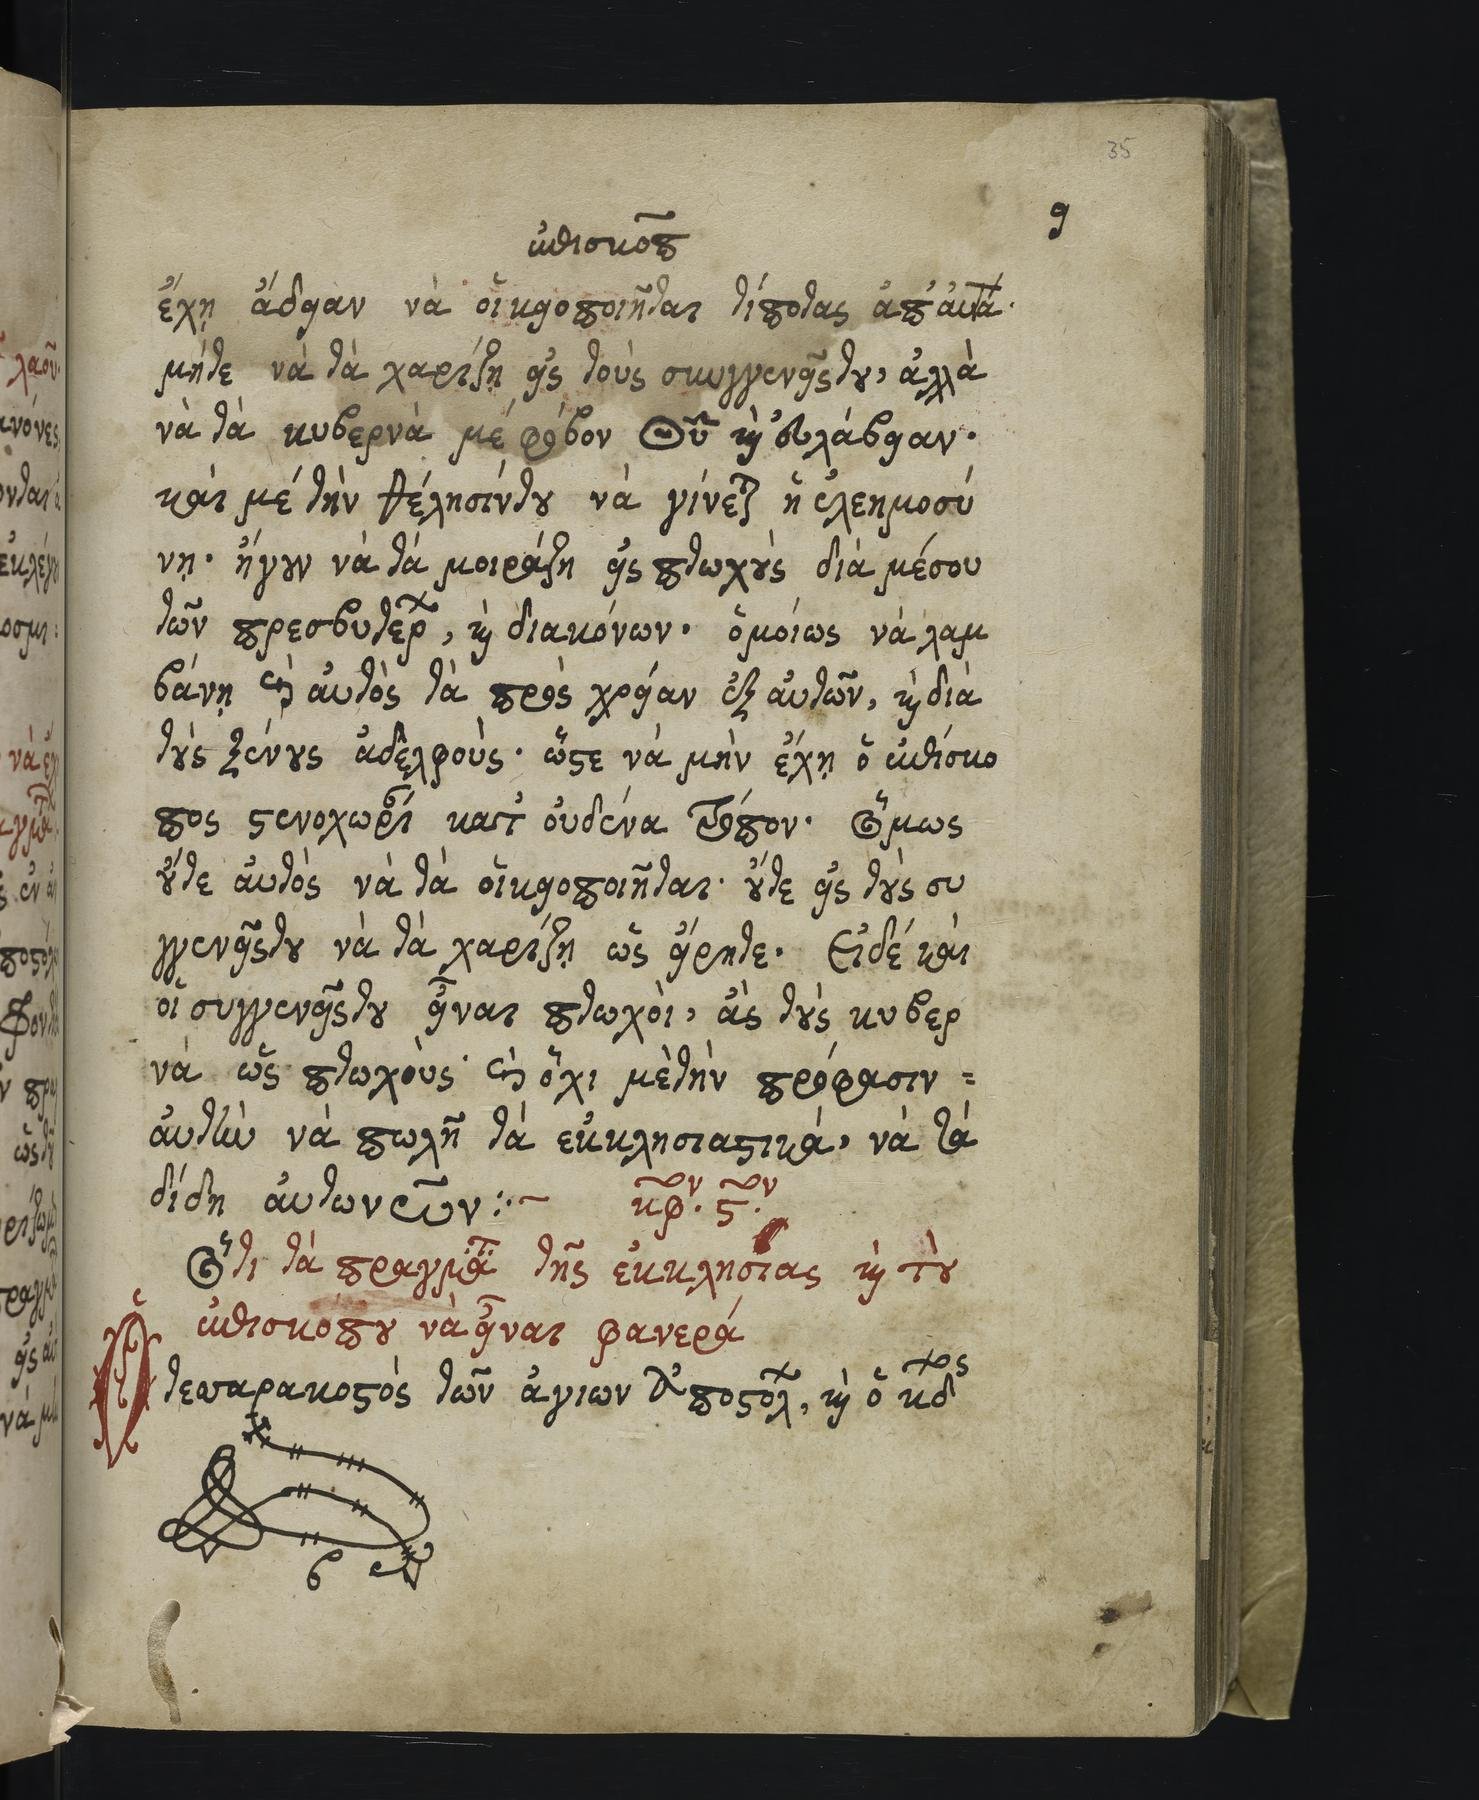 35
9
ἐπισκοπ
ἔχῃ ἄδειαν νὰ οἰκειοποιῆται τίποτας ἀπ' αὐτά·
μήτε νὰ τὰ χαρίζῃ εἰς τοὺς συγγενεῖς του, ἀλλὰ
νὰ τὰ κυβερνὰ μέ φόβον Θῦ κỳ εὐλάβειαν·
καὶ μέ τὴν θέλησίν του νὰ γίνεται ἡ ἐλεημοσύ
νη· ἤγουν νὰ τὰ μοιράζη εἰς πτωχοὺς διὰ μέσου
τῶν πρεσβυτέρ, κỳ διακόνων· ὁμοίως νὰ λαμ
βάνῃ καὶ αὐτὸς τὰ πρὸς χρείαν ἐξ αὐτῶν, κỳ διὰ
τοὺς ξένους ἀδελφοὺς· ὥστε νὰ μὴν ἔχῃ ὁ ἐπίσκο
πος στενοχωρί κατ' οὐδένα τρόπον· Ὅμως
οὔτε αὐτὸς νὰ τὰ οἰκειοποιῆται· οὔτε εἰς τοὺς συ
γγενεῖς του νὰ τὰ χαρίζῃ ὡς εἴρητε· Εἰδέ καὶ
οἱ συγγενεῖς του εἶναι πτωχὸι, ἂς τοὺς κυβερ
νὰ ὡς πτωχοὺς· καὶ ὄχι μὲ τὴν πρόφασιν =
αὐτῶν νὰ πωλῆ τὰ ἐκκλησιαστικά, νὰ τὰ
δίδη αὐτωνῶν :~ κφ. ϛ.
Ὅτι τὰ πραγμα τῆς ἐκκλησίας κỳ τοῦ
ἐπισκόπου νὰ εἶναι φανερά
Ὁ τεσσαρακοστὸς τῶν ἁγιων Ἀποστολ, κỳ ὁ κδ